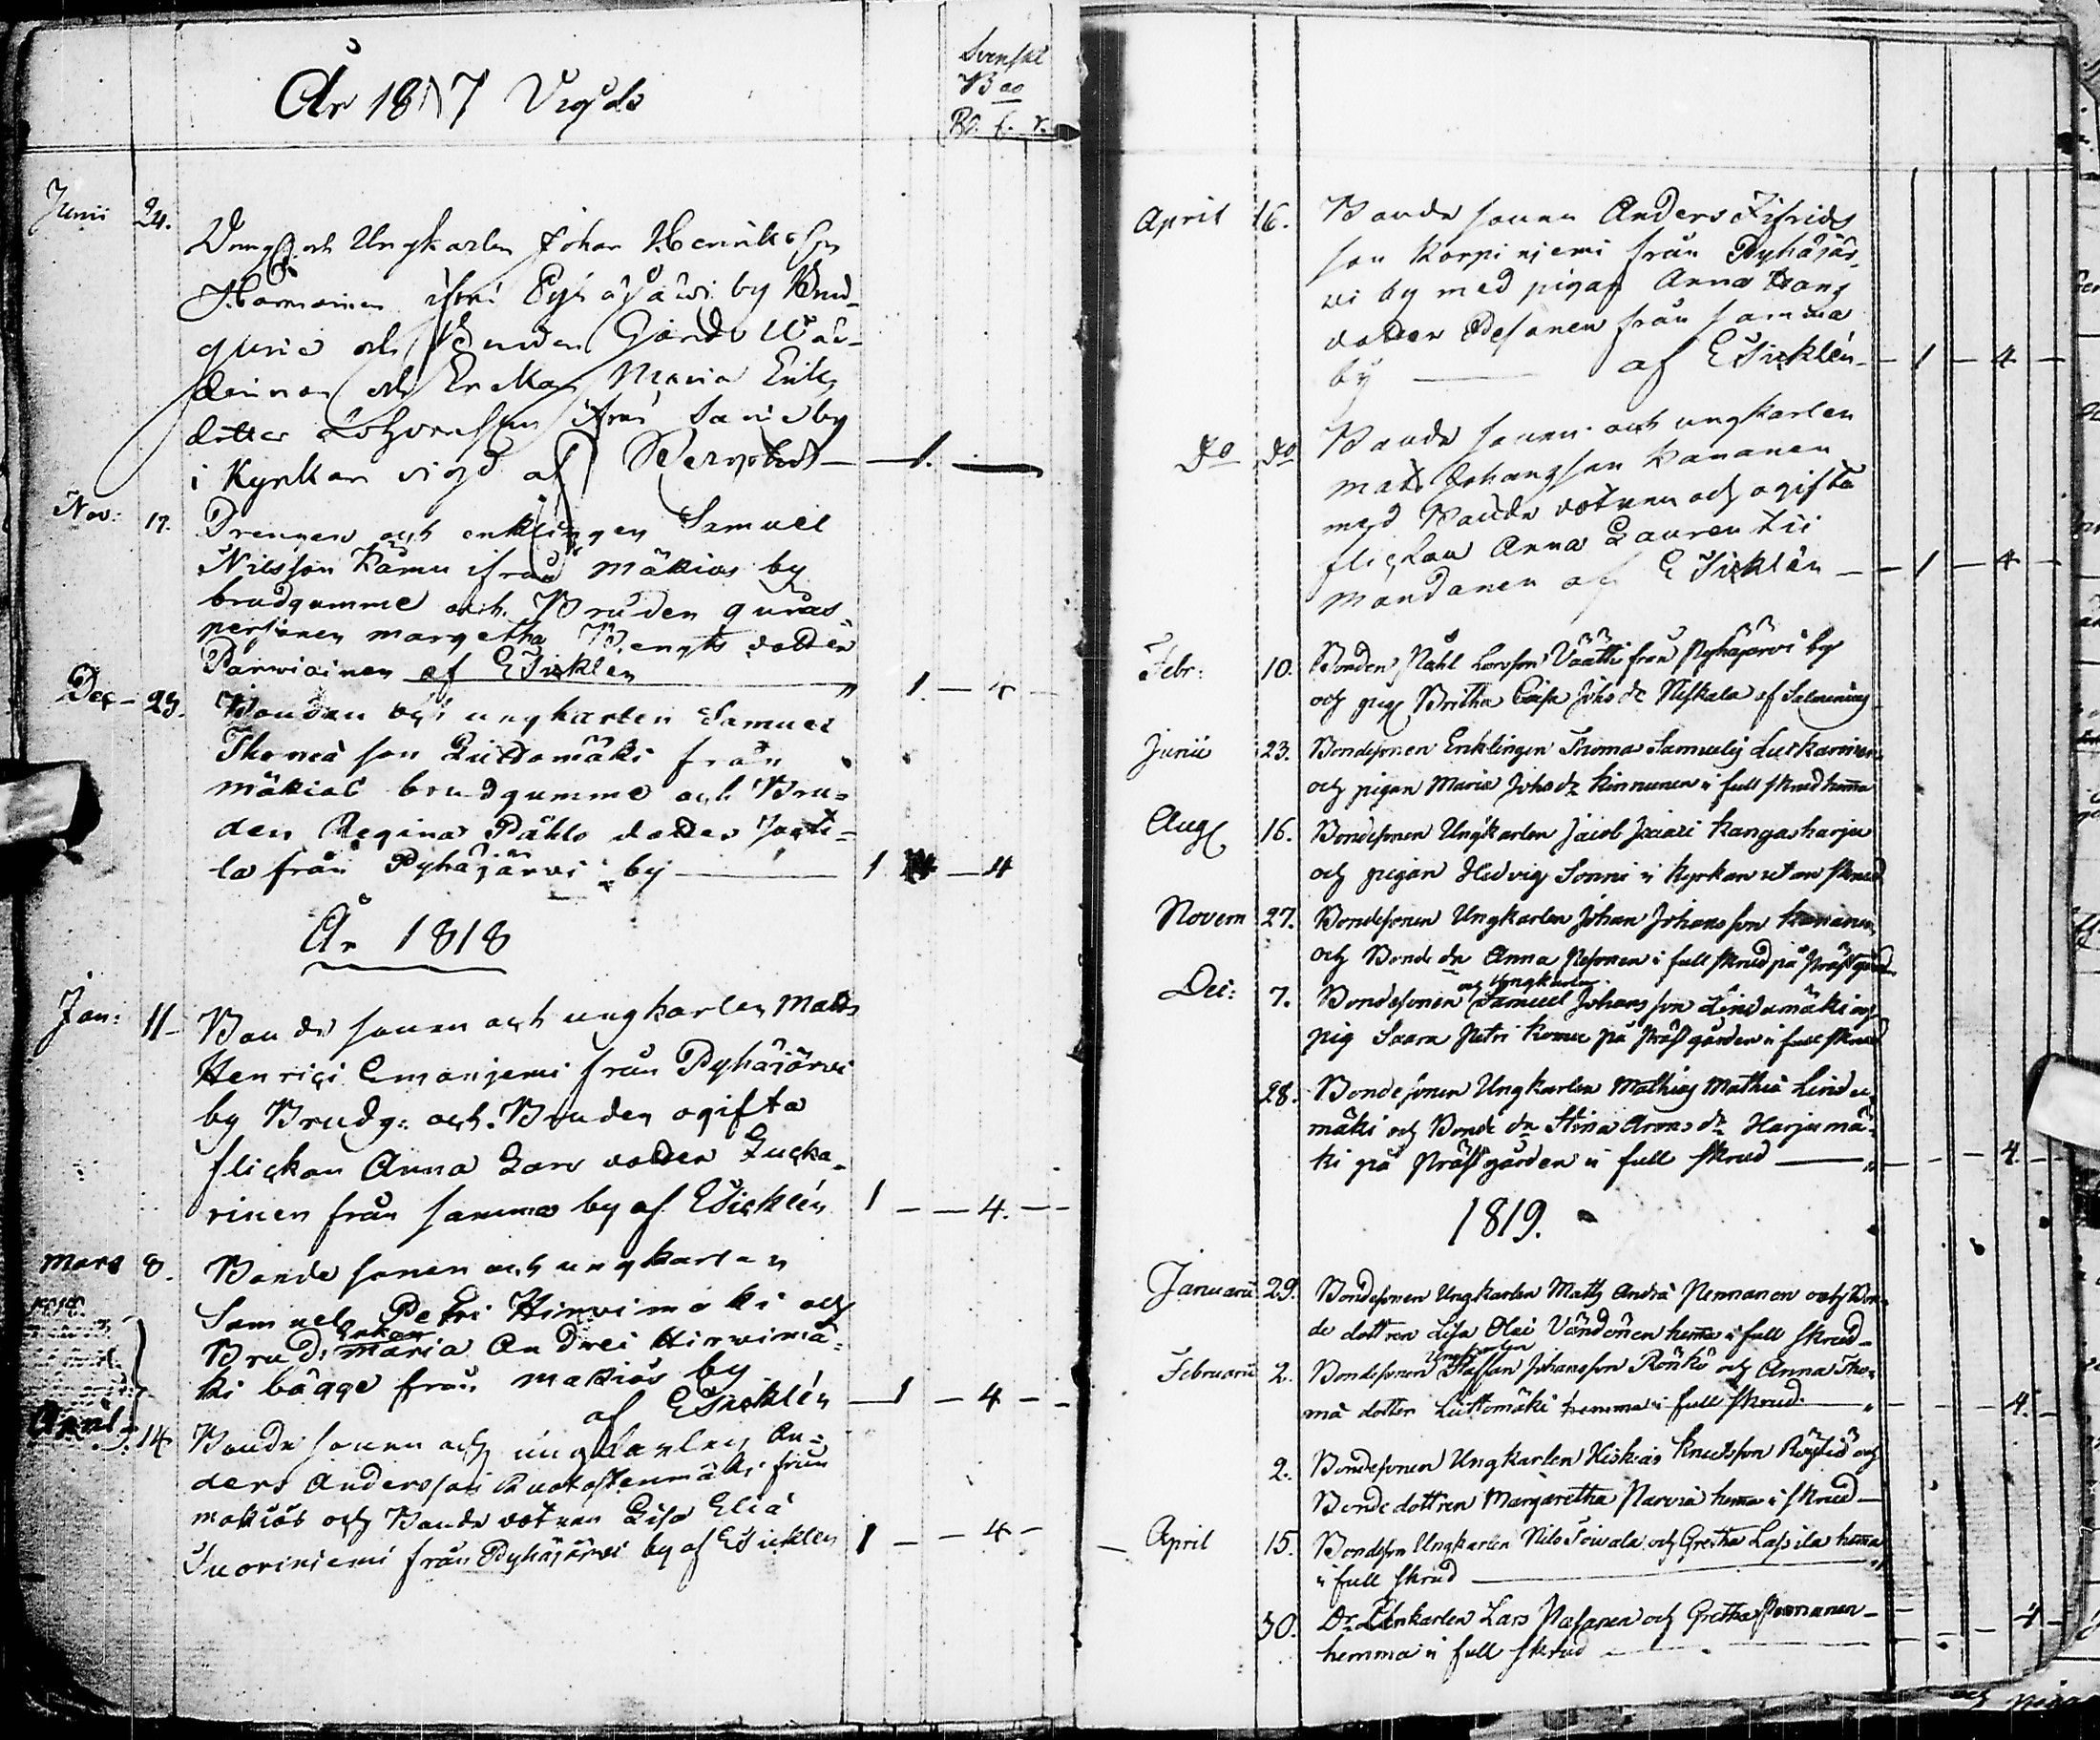 År 1817 Vigde
Svenskt
Bco
Rd. s. r.
Junii 24. Dreng. och Ungkarlen Johan Henriksson
ifrån Pyhäjärvi by Brud-
gume och Bruden
och Enkan Maria Eriks
dotter ifrån Samma by
i Kyrkan vigd af — 1. —
Nov: 17. Drengen och enklingen Samuel
Nilsson Kämu ifrån Mäkiäs by
brudgumme och Bruden
personen Margetha Bengts dotter
Parviainen af E Sicklén 1. — 4 —
Dec — 29. Bonden och ungkarlen Samuel
Thomæ son Liittomäki från
Mäkiäs brudgumme och Bru-
den Regina Påhls dotter
la från Pyhäjärvi by — 1 — 4
År 1818
Jan: 11 — Bonde sonen och ungkarlen Matts
Henrici Emoniemi från Pyhäjärvi
by Brudg: och Bruden ogifta
flickan Anna Lars dotter Lucka-
rinen från samma by af E Sicklén 1 — — 4. — —
Mars 8. Bonde sonen och ungkarlen
Samuel Petri Hirvimäki och
Brud: Enkan Maria Andrei Hirvimä-
ki bägge från Mäkiäs by
af E Sicklén — 1 — 4 — —
April: 14 Bonde sonen och ungkarlen An-
ders Andersson från
Mäkiäs och Bonde dotren Lisa Eliæ
Suoriniemi från Pyhäjärvi by af E Sicklén 1 — — 4 —
April 16. Bonde sonen Anders Zifrids
son Korpiniemi från Pyhäjär-
vi by med pigan Anna Hans
dotter Pesonen från samma
by — af E Sicklén — 1 — 4 —
Do Do Bonde sonen och ungkarlen
Mats Johansson Kananen
med Bonde dotren och ogifta
flickan Anna Laurentii
Mandanen af E Sicklén — 1 — 4 —
Febr: 10. Bonden Påhl Larsson Väätti från Pyhäjärvi by
och pig: Britha Caisa Johs dr Niskala af Salamins
Junii 23. Bondesonen Enklingen Thomas Samuelis Luckarinen
och pigan Maria Johs dr Kinnunen i full skrud hemma
Aug: 16. Bondesonen Ungkarlen Jacob Isaari Kangasharju
och pigan Hedvig Sonni i Kyrkan utan skrud
Novem 27. Bondesonen Ungkarlen Johan Johansson Kananen
och Bonde dr Anna Pesonen i full skrud på Prästgården
Dec: 7. Bondesonen och Ungkarlen Samuel Johansson Lindumäki och
pig Saara Petri Komu på Prästgården i full skrud
28. Bondesonen Ungkarlen Mathias Mathiæ Lindu-
mäki och Bonde dr Stina Arons dr Harjumä-
ki på Prästgården i full skrud — — — 4. —
1819.
Januarii 29. Bondesonen Ungkarlen Matts Andræ Pennanen och Bon-
de dottren Lisa Olai Vändönen hemma i full skrud —
Februarii 2. Bondesonen Ungkarlen Staffan Johansson Rönkö och Anna Tho-
mæ dotter Liittomäki hemma i full skrud. — — 4. —
2. Bondesonen Ungkarlen Hiskias Knutsson Röytiö och
Bonde dottren Margaretha Parvia hemma i skrud —
— April 15. Bondeson Ungkarlen Nils Toivala och Gretha Lassila hemma
i full skrud —
30. Do Unkarlen Lars Pesanen och Gretha Pennanen —
hemma i full skrud — — 4 —